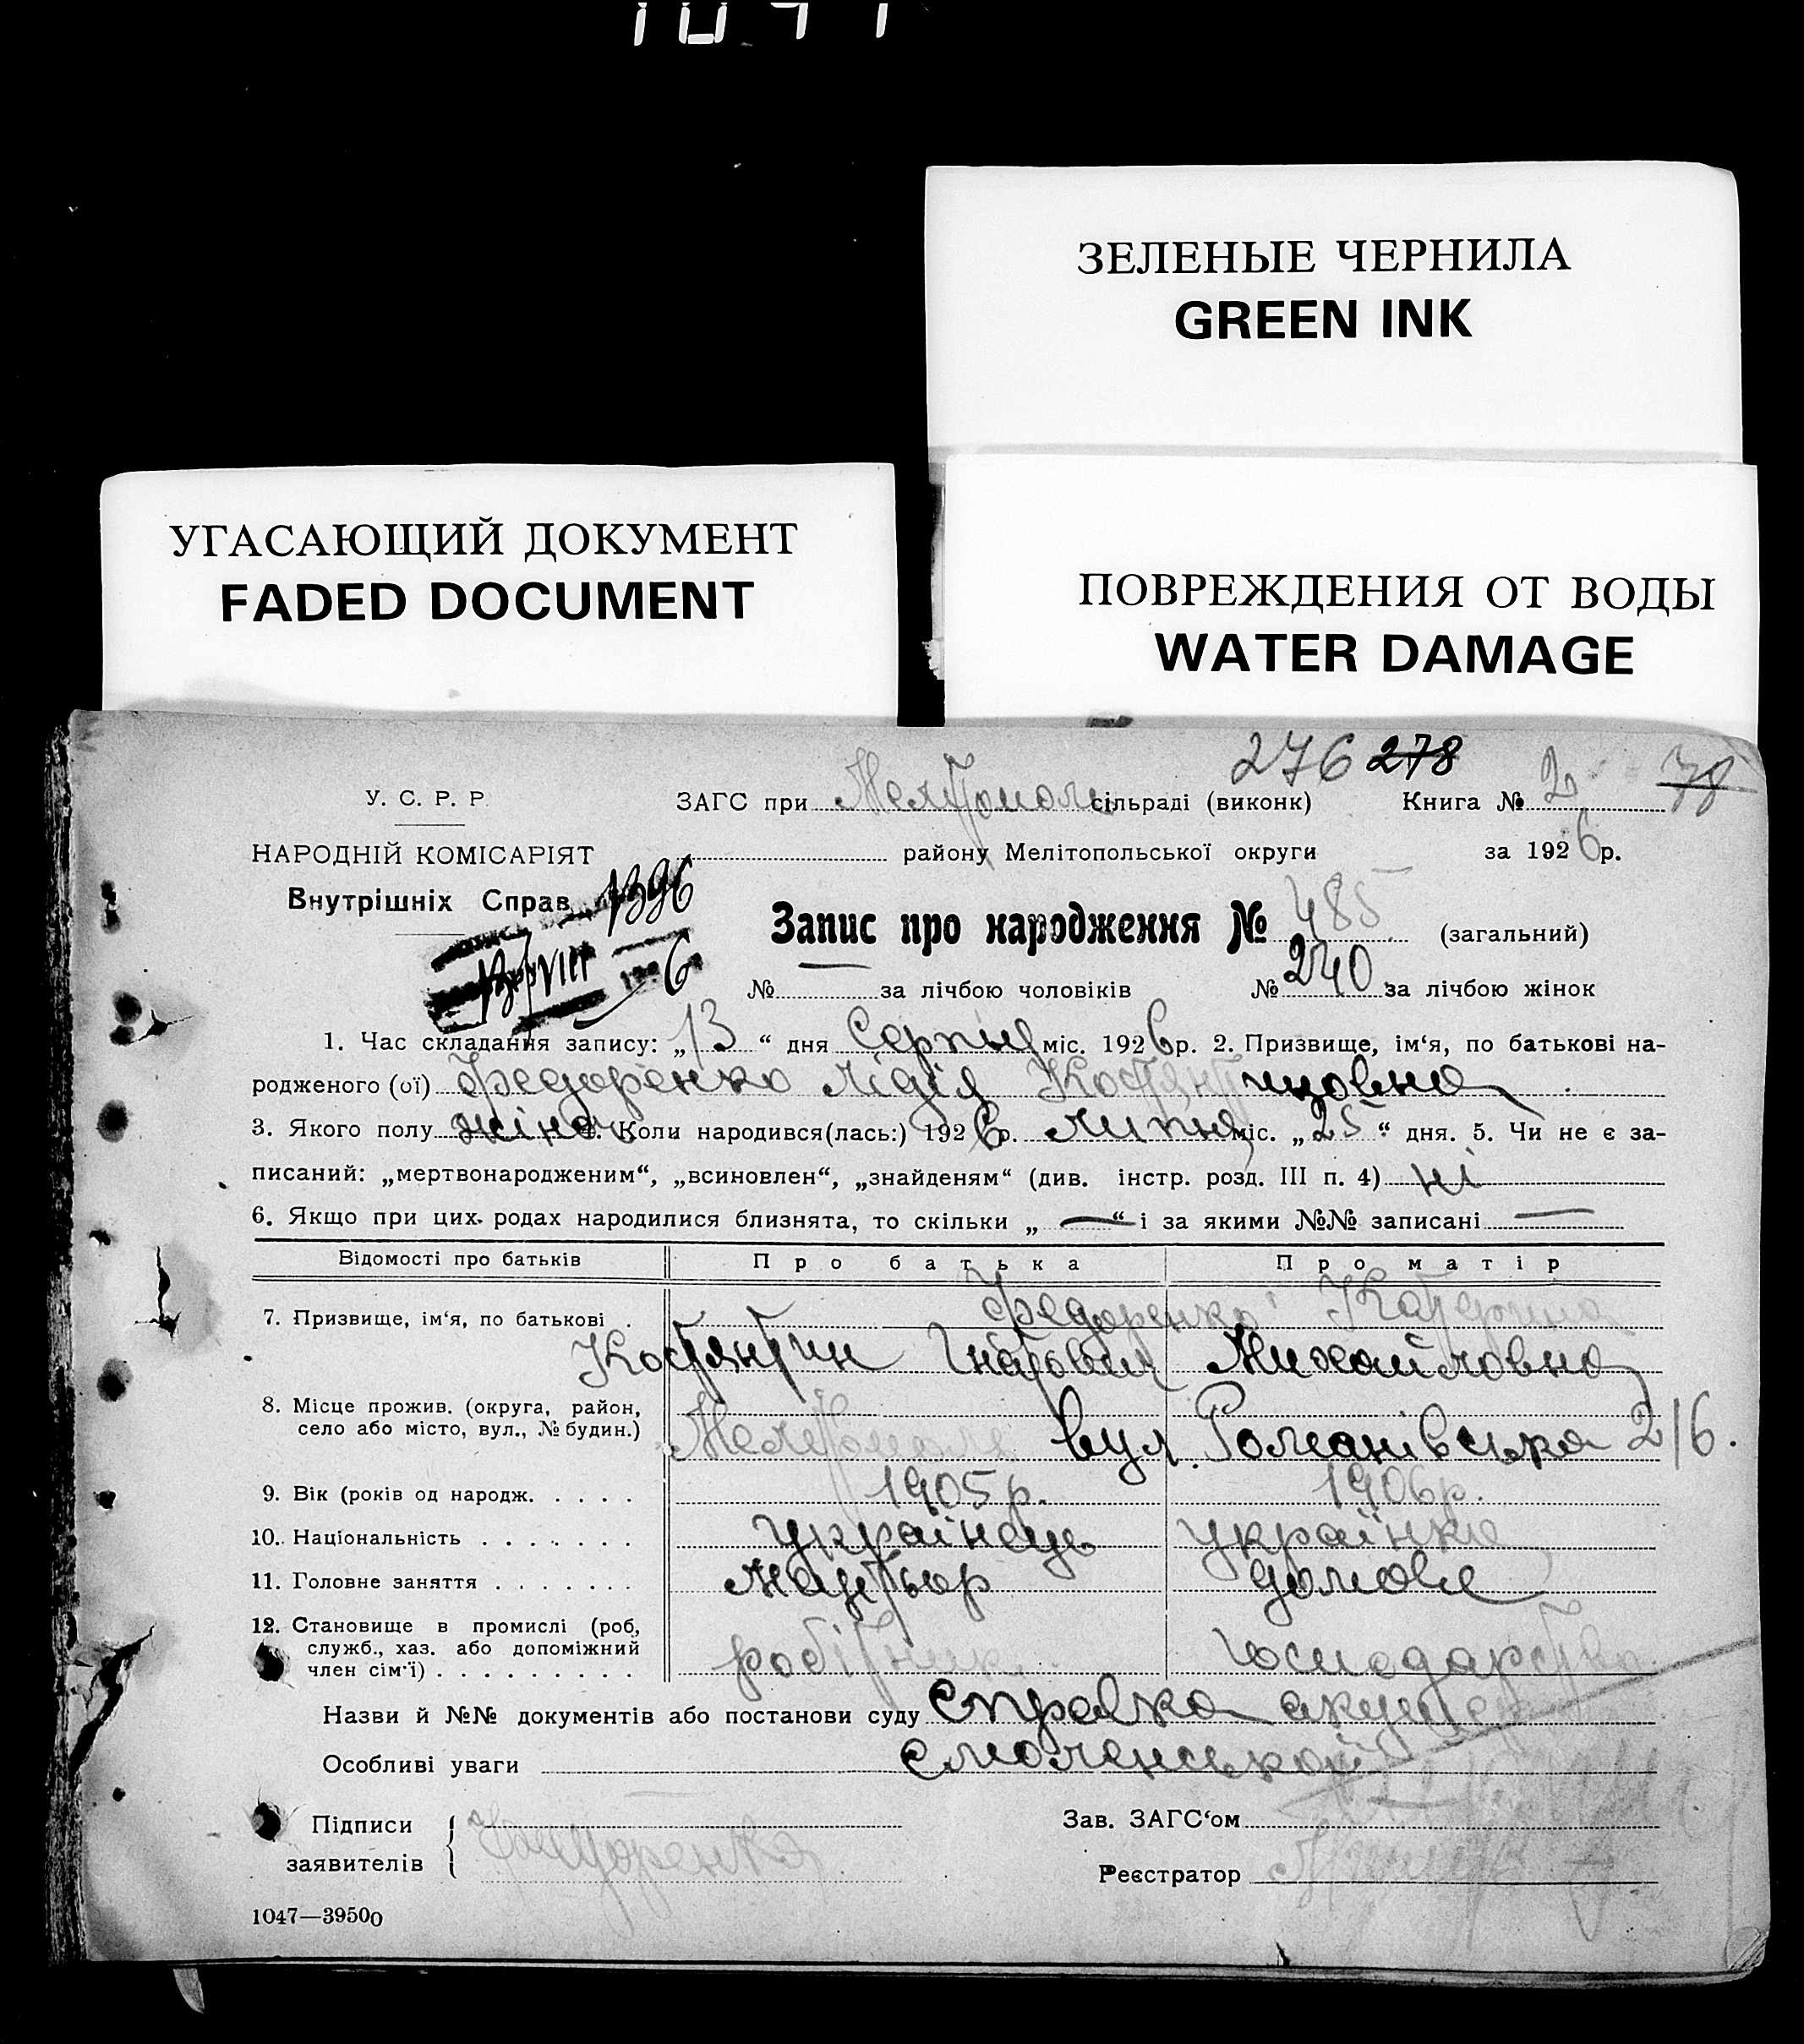 ЗЕЛЕНЫЕ ЧЕРНИЛА
GREEN INK
УГАСАЮЩИЙ ДОКУМЕНТ
FADED DOCUMENT
ПОВРЕЖДЕНИЯ ОТ ВОДЫ
WATER DAMAGE
276 278
У. С. Р. Р. ЗАГС при Мелітополь сільраді (виконк) Книга № 2 78
НАРОДНІЙ КОМІСАРІЯТ району Мелітопольської округи за 1926 р.
Внутрішніх Справ 1396
Запис про народження № 485 (загальний)
13/VIII 6
№ — за лічбою чоловіків № 240 за лічбою жінок
1. Час складання запису: „13“ дня Серпня міс. 1926 р. 2. Призвище, ім‘я, по батькові на-
родженого (ої) Федоренко Лідія Костянтиновна
3. Якого полу жіноч. 4. Коли народився(лась:) 1926 р. липня міс. „25“ дня. 5. Чи не є за-
писаний: „мертвонародженим“, „всиновлен“, „знайденям“ (див. інстр. розд. III п. 4) ні
6. Якщо при цих родах народилися близнята, то скільки „—“ і за якими №№ записані —
Відомості про батьків Про батька Про матір
7. Призвище, ім‘я, по батькові . Федоренко Катерина
Костянтин Гнатович Михайловна
8. Місце прожив. (округа, район,
село або місто, вул., № будин.) Мелітополь вул. Романівська 216.
9. Вік (років од народж. . . . . 1905 р. 1906 р.
10. Національність . . . . . . . українець українка
11. Головне заняття . . . . . . . домове
12. Становище в промислі (роб,
служб., хаз. або допоміжний
член сім‘ї) . . . . . . . . . робітник господарство
Назви й №№ документів або постанови суду Справка акушер
Особливі уваги Смоленської
Підписи Зав. ЗАГС‘ом
заявителів
Реєстратор
1047—39500